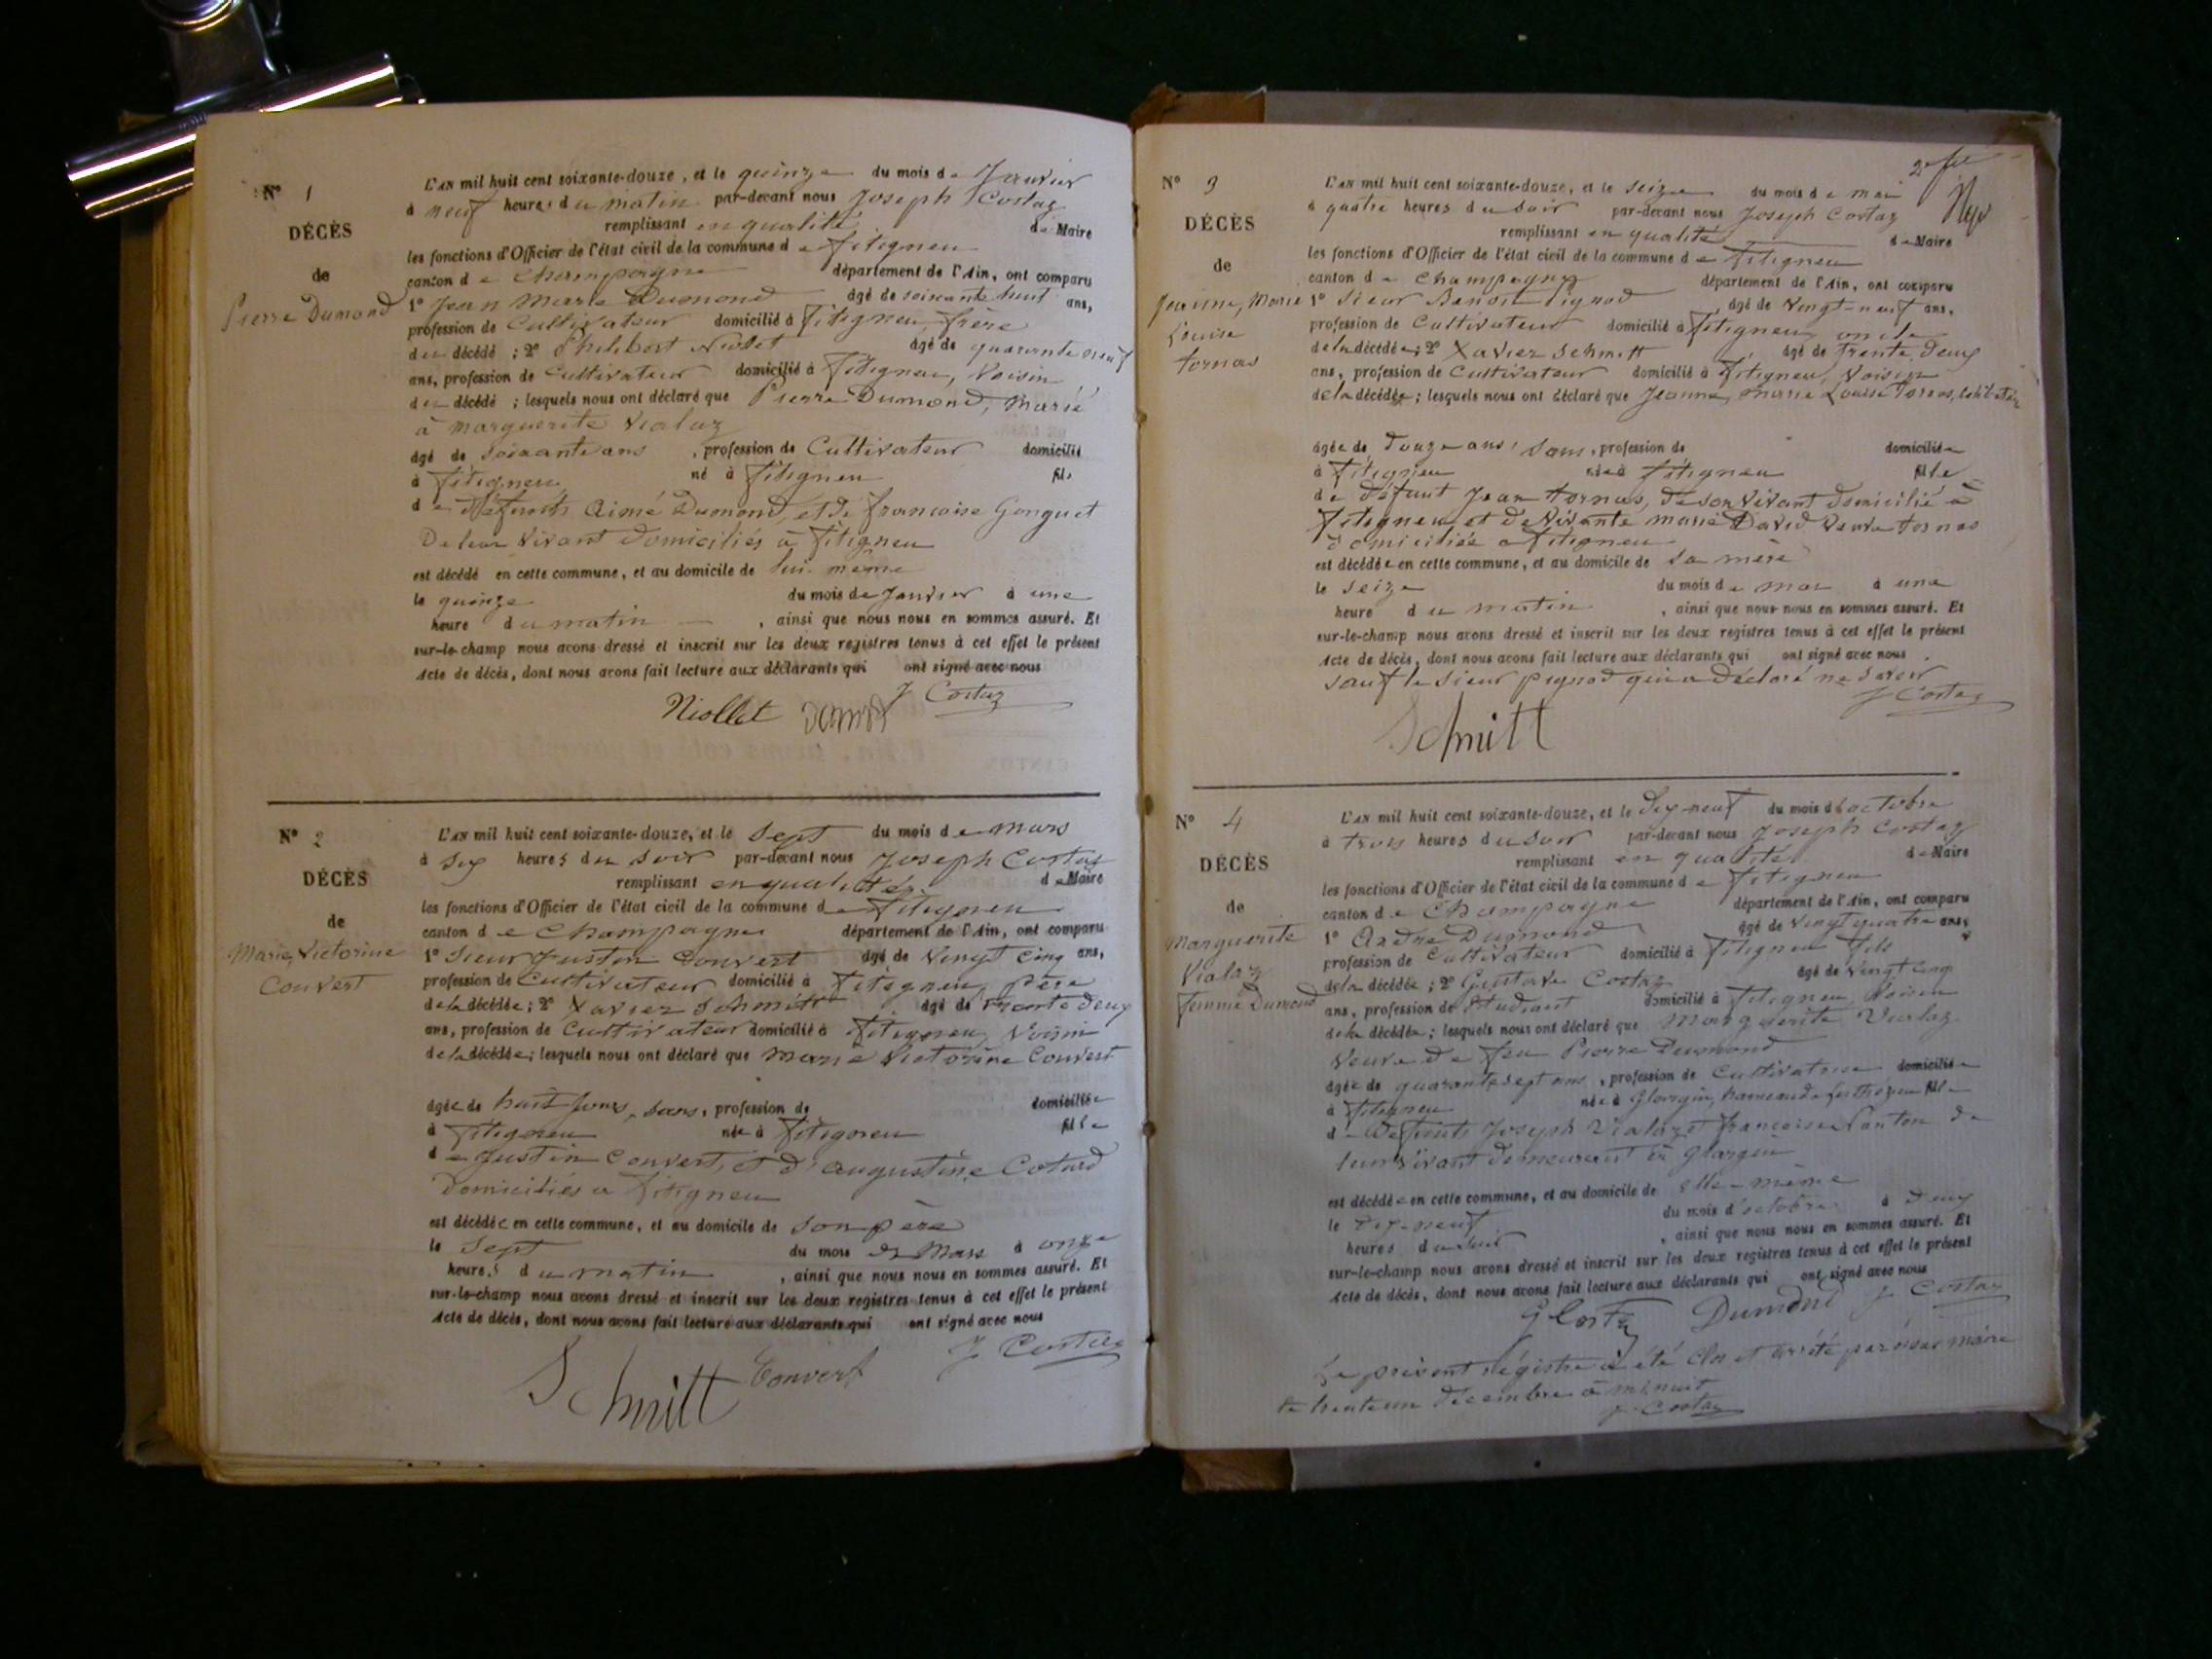 N° 1
DÉCÈS
de
Pierre Dumond
L'AN mil huit cent soixante-douze, et le quinze du mois de Janvier
à neuf heures du matin par-devant nous Joseph Costaz
remplissant en qualité de Maire
les fonctions d'Officier de l'état civil de la commune de fitigneu
canton de Champagne département de l'Ain, ont comparu
1° Jean Marie Dumond âgé de soixante huit ans,
profession de Cultivateur domicilié à fitigneu, frère
du décédé ; 2° Philibert Niolet âgé de quarante neuf
ans, profession de Cultivateur domicilié à fitigneu, Voisin
du décédé ; lesquels nous ont déclaré que Pierre Dumond, Marié
à Marguerite Vialaz
âgé de soixante ans , profession de Cultivateur domicilié
à fitigneu né à fitigneu fils
de Défunts Aimé Dumond, et de francoise Gonguet
De leur Vivant domiciliés à fitigneu
est décédé en cette commune, et au domicile de lui-même
le quinze du mois de Janvier à une
heure du matin , ainsi que nous nous en sommes assuré. Et
sur-le-champ nous avons dressé et inscrit sur les deux registres tenus à cet effet le présent
Acte de décès, dont nous avons fait lecture aux déclarants qui ont signé avec nous
J Costaz
Niollet
N° 2
DÉCÈS
de
Marie, Victorine
Convert
L'AN mil huit cent soixante-douze, et le Sept du mois de Mars
à Six heures du soir par-devant nous Joseph Costaz
remplissant en qualité de Maire
les fonctions d'Officier de l'état civil de la commune de fitigneu
canton de Champagne département de l'Ain, ont comparu
1° Sieur Justin Convert âgé de Vingt cinq ans,
profession de Cultivateur domicilié à fitigneu, Père
de la décédée ; 2° Xavier Schmitt âgé de trente deux
ans, profession de Cultivateur domicilié à fitigneu, Voisin
de la décédée ; lesquels nous ont déclaré que Marie Victorine Convert
âgée de huit Jours, sans , profession de domiciliée
à fitigneu née à fitigneu fille
de Justin Convert, et d'augustine Cotard
Domiciliés à fitigneu
est décédée en cette commune, et au domicile de son père
le Sept du mois de Mars à onze
heures du matin , ainsi que nous nous en sommes assuré. Et
sur-le-champ nous avons dressé et inscrit sur les deux registres tenus à cet effet le présent
Acte de décès, dont nous avons fait lecture aux déclarants qui ont signé avec nous
J Costaz
Schmitt Convert
N° 3
DÉCÈS
de
Jeanne, Marie
Louise
tornas
L'AN mil huit cent soixante-douze, et le seize du mois de mai
à quatre heures du soir par-devant nous Joseph Costaz
remplissant en qualité de Maire
les fonctions d'Officier de l'état civil de la commune de fitigneu
canton de Champagne département de l'Ain, ont comparu
1° Sieur Benoit Pignod , âgé de Vingt-neuf ans,
profession de Cultivateur domicilié à fitigneu, oncle
de la décédée ; 2° Xavier Schmitt âgé de trente deux
ans, profession de Cultivateur domicilié à fitigneu, Voisin
de la décédée ; lesquels nous ont déclaré que Jeanne, Marie Louise tornas,
âgée de Douze ans, sans , profession de domiciliée
à fitigneu née à fitigneu fille
de défunt Jean tornas, de son vivant domicilié à
fitigneu et de Vivante marie David Veuve tornas
domiciliée à fitigneu
est décédée en cette commune, et au domicile de sa mère
le seize du mois de mai à une
heure du matin , ainsi que nous nous en sommes assuré. Et
sur-le-champ nous avons dressé et inscrit sur les deux registres tenus à cet effet le présent
Acte de décès, dont nous avons fait lecture aux déclarants qui ont signé avec nous
sauf le sieur pignod qui a déclaré ne savoir
J Costaz
Schmitt
N° 4
DÉCÈS
de
Marguerite
Vialaz
femme Dumond
L'AN mil huit cent soixante-douze, et le Dix neuf du mois d'octobre
à trois heures du soir par-devant nous Joseph Costaz
remplissant en qualité de Maire
les fonctions d'Officier de l'état civil de la commune de fitigneu
canton de Champagne département de l'Ain, ont comparu
1° Andre Dumond âgé de Vingt quatre ans,
profession de Cultivateur domicilié à fitigneu fils
de la décédée ; 2° Gustave Costaz âgé de vingt cinq
ans, profession de Etudiant domicilié à fitigneu, Voisin
de la décédée ; lesquels nous ont déclaré que Marguerite Vialaz
Veuve de feu Pierre Dumond
âgée de quarante sept ans , profession de Cultivatrice domiciliée
à fitigneu née à hameau de fille
de Défunts Joseph Vialaz et francoise de
leur vivant demeurant à
est décédée en cette commune, et au domicile de elle-même
le Dix-neuf du mois d'octobre à deux
heures du soir , ainsi que nous nous en sommes assuré. Et
sur-le-champ nous avons dressé et inscrit sur les deux registres tenus à cet effet le présent
Acte de décès, dont nous avons fait lecture aux déclarants qui ont signé avec nous
Dumond J Costaz
Le présent régistre a été clos et arrêté par nous maire
le trente un décembre à minuit
J Costaz